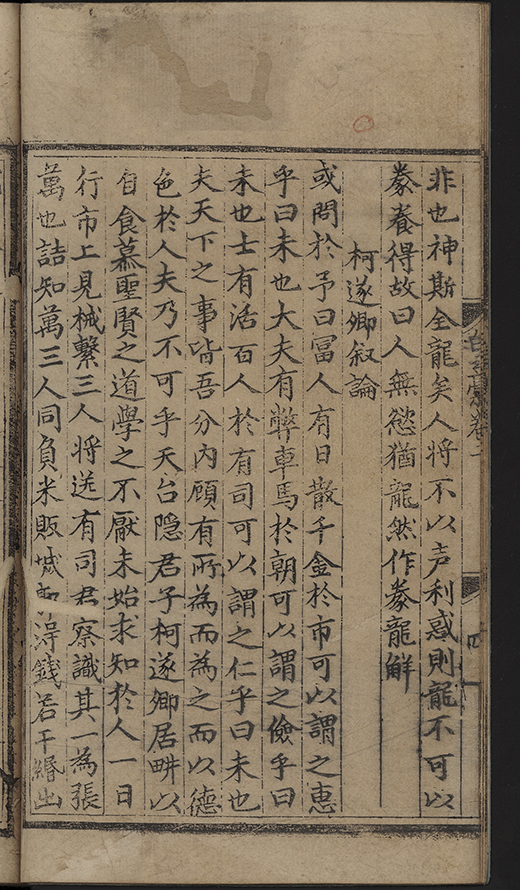 非也神斯全龍矣人將不以声利惑則龍不可以
豢養得故曰人無慾猶龍然作豢龍解
柯遂卿叙論
或問於予曰冨人有日散千金於市可以謂之惠
乎曰未也大夫有弊車馬於朝可以謂之儉乎曰
未也士有活百人於有司可以謂之仁乎曰未也
夫天下之事皆吾分內顧有所為而為之而以德
色於人夫乃不可乎天台隐君子柯遂卿居畊以
自食慕聖賢之道學之不厭未始求知於人一日
行市上見械繫三人將送有司君察識其一為張
萬也詰知萬三人同負米販城郭淂錢若干緡出
卷一
四